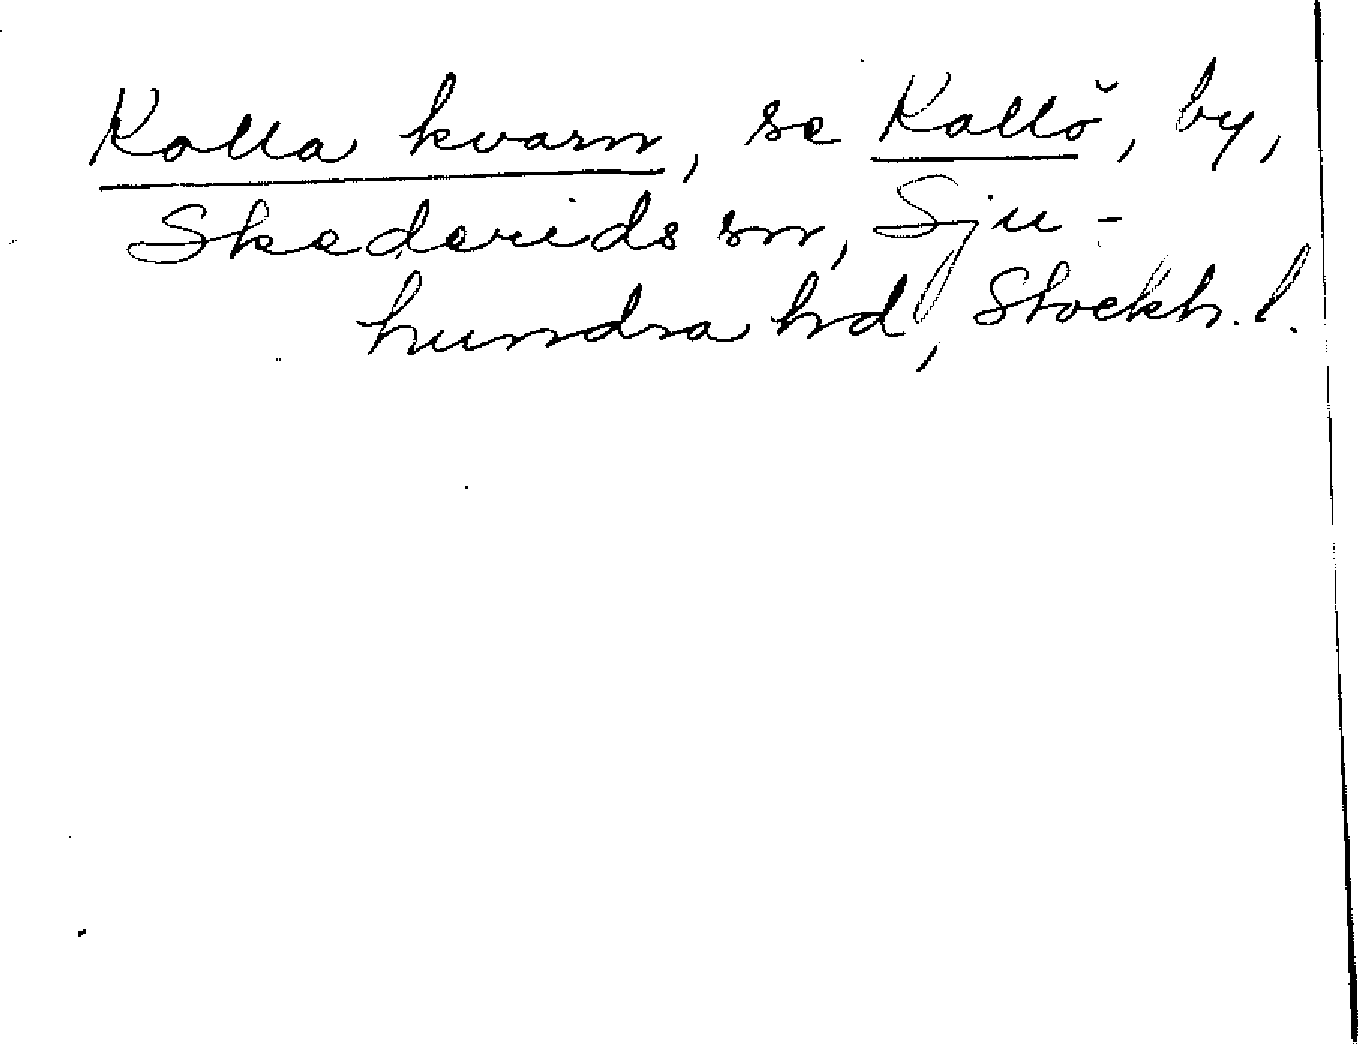 Kalla kvarn, se Kallö, by,
Skederids sn, Sju-
hundra hd, Stockh. l.